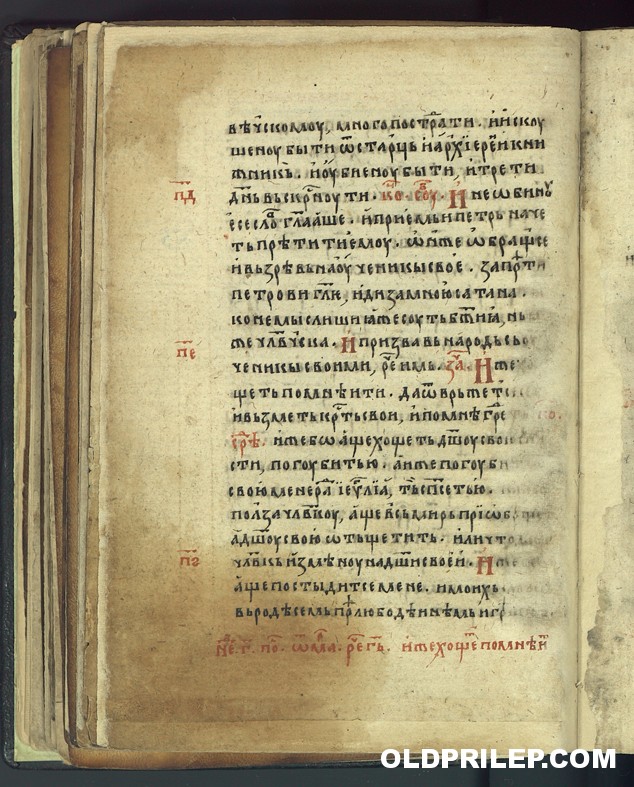 вѣчскомоу, много пострати. и искоу
шеноу быти ѿ старць и архїереи и кни
жникь. и оубїеноу быти, и трети
пд
днь вьскрноути. И не ѡбиноу
ѥсе сло глааше. и приемь и петрь наче
ть прѣтити емоу. ѡн же ѡбращсе
и вьзрѣвь на оученикы свое. запрти
петрови гли, иди за мною сатана.
ко не мыслиши ꙗже соуть бжиꙗ, нь
же члвчска. И призвавь народь сь о
пе
ченикы своими, рче имь. за И же
щеть по мнѣ ити. да ѿврьжетс
и вьзметь крть свои, и по мнѣ гре
срѣ. иже бо аще хощеть дшоу свою
сти, погоубить ю. а иже погоуби
свою мене ра и еѵлїа, ть спсеть ю.
полза члвкоу, аще вьсь мирь прїѡб
а дшоу свою ѡтьщетить. или что
пг
члвкь измѣноу на дши своеи. И
аще постыдитсе мене. и моихь
вь родѣ семь прѣлюбодѣинѣмь и гр
не. г. по. ѿ ма. рче гь. иже хощеть по мнѣ и
OLDPRILEP.COM